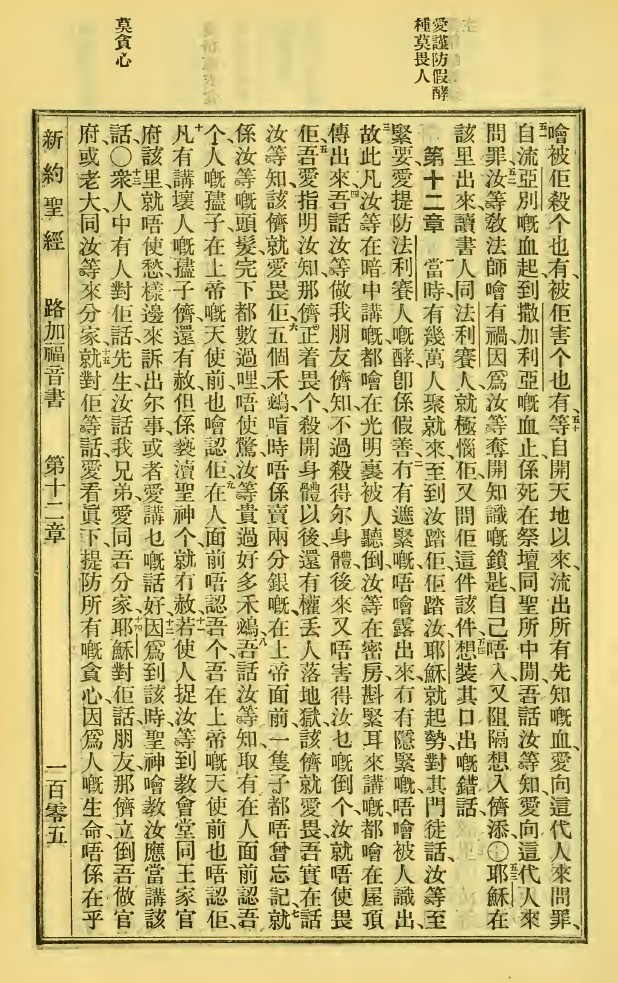 愛謹防假酵
種莫畏人
莫貪心
噲被佢殺个也有、被佢害个也有、五十等自開天地以來、流出所有先知嘅血、愛向這代人來問罪、
五一自流亞別嘅血起到撒加利亞嘅血止、係死在祭壇同聖所中間、吾話汝等知、愛向這代人來
問罪、五二汝等教法師噲有禍、因爲汝等奪開知識嘅鎖匙、自己唔入、又阻隔想入儕添、〇五三耶穌在
該里出來、讀書人同法利賽人就極惱佢、又問佢這件該件、五四想裝其口出嘅錯話、
第十二章 一當時有幾萬人聚就來、至到汝踏佢佢踏汝、耶穌就起勢對其門徒話、汝等至
緊要愛提防法利賽人嘅酵、卽係假善、二冇有遮緊嘅唔噲露出來、冇有隱緊嘅唔噲被人識出、
三故此凡汝等在暗中講嘅、都噲在光明裏被人聽倒、汝等在密房斟緊耳來講嘅、都噲在屋頂
傳出來、四吾話汝等做我朋友儕知、不過殺得尔身體、後來又唔害得汝乜嘅倒个、汝就唔使畏
佢、五吾愛指明汝知那儕正着畏、个殺開身體以後、還有權丟人落地獄、該儕就愛畏、吾實在話
汝等知、該儕就愛畏佢、六五個禾鷯喧時唔係賣兩分銀嘅、在上帝面前一隻子都唔曾忘記、七就
係汝等嘅頭髮完下都數過哩、唔使驚、汝等貴過好多禾鷯、八吾話汝等知、取有在人面前認吾
个、人嘅孻子在上帝嘅天使前也噲認佢、九在人面前唔認吾个、吾在上帝嘅天使前也唔認佢、
十凡有講壞人嘅孻子儕、還有赦、但係褻瀆聖神个就冇赦、十一若使人捉汝等到敎會堂同王家官
府該里、就唔使愁樣邊來訴出尔事、或者愛講乜嘅話好、十二因爲到該時聖神噲教汝應當講該
話、〇十三衆人中有人對佢話、先生、汝話我兄弟愛同吾分家、十四耶穌對佢話、朋友、那儕立倒吾做官
府或老大同汝等來分家、十五就對佢等話、愛看眞下、提防所有嘅貪心、因爲人嘅生命唔係在乎
新約聖經 路加福音書 第十二章 一百零五